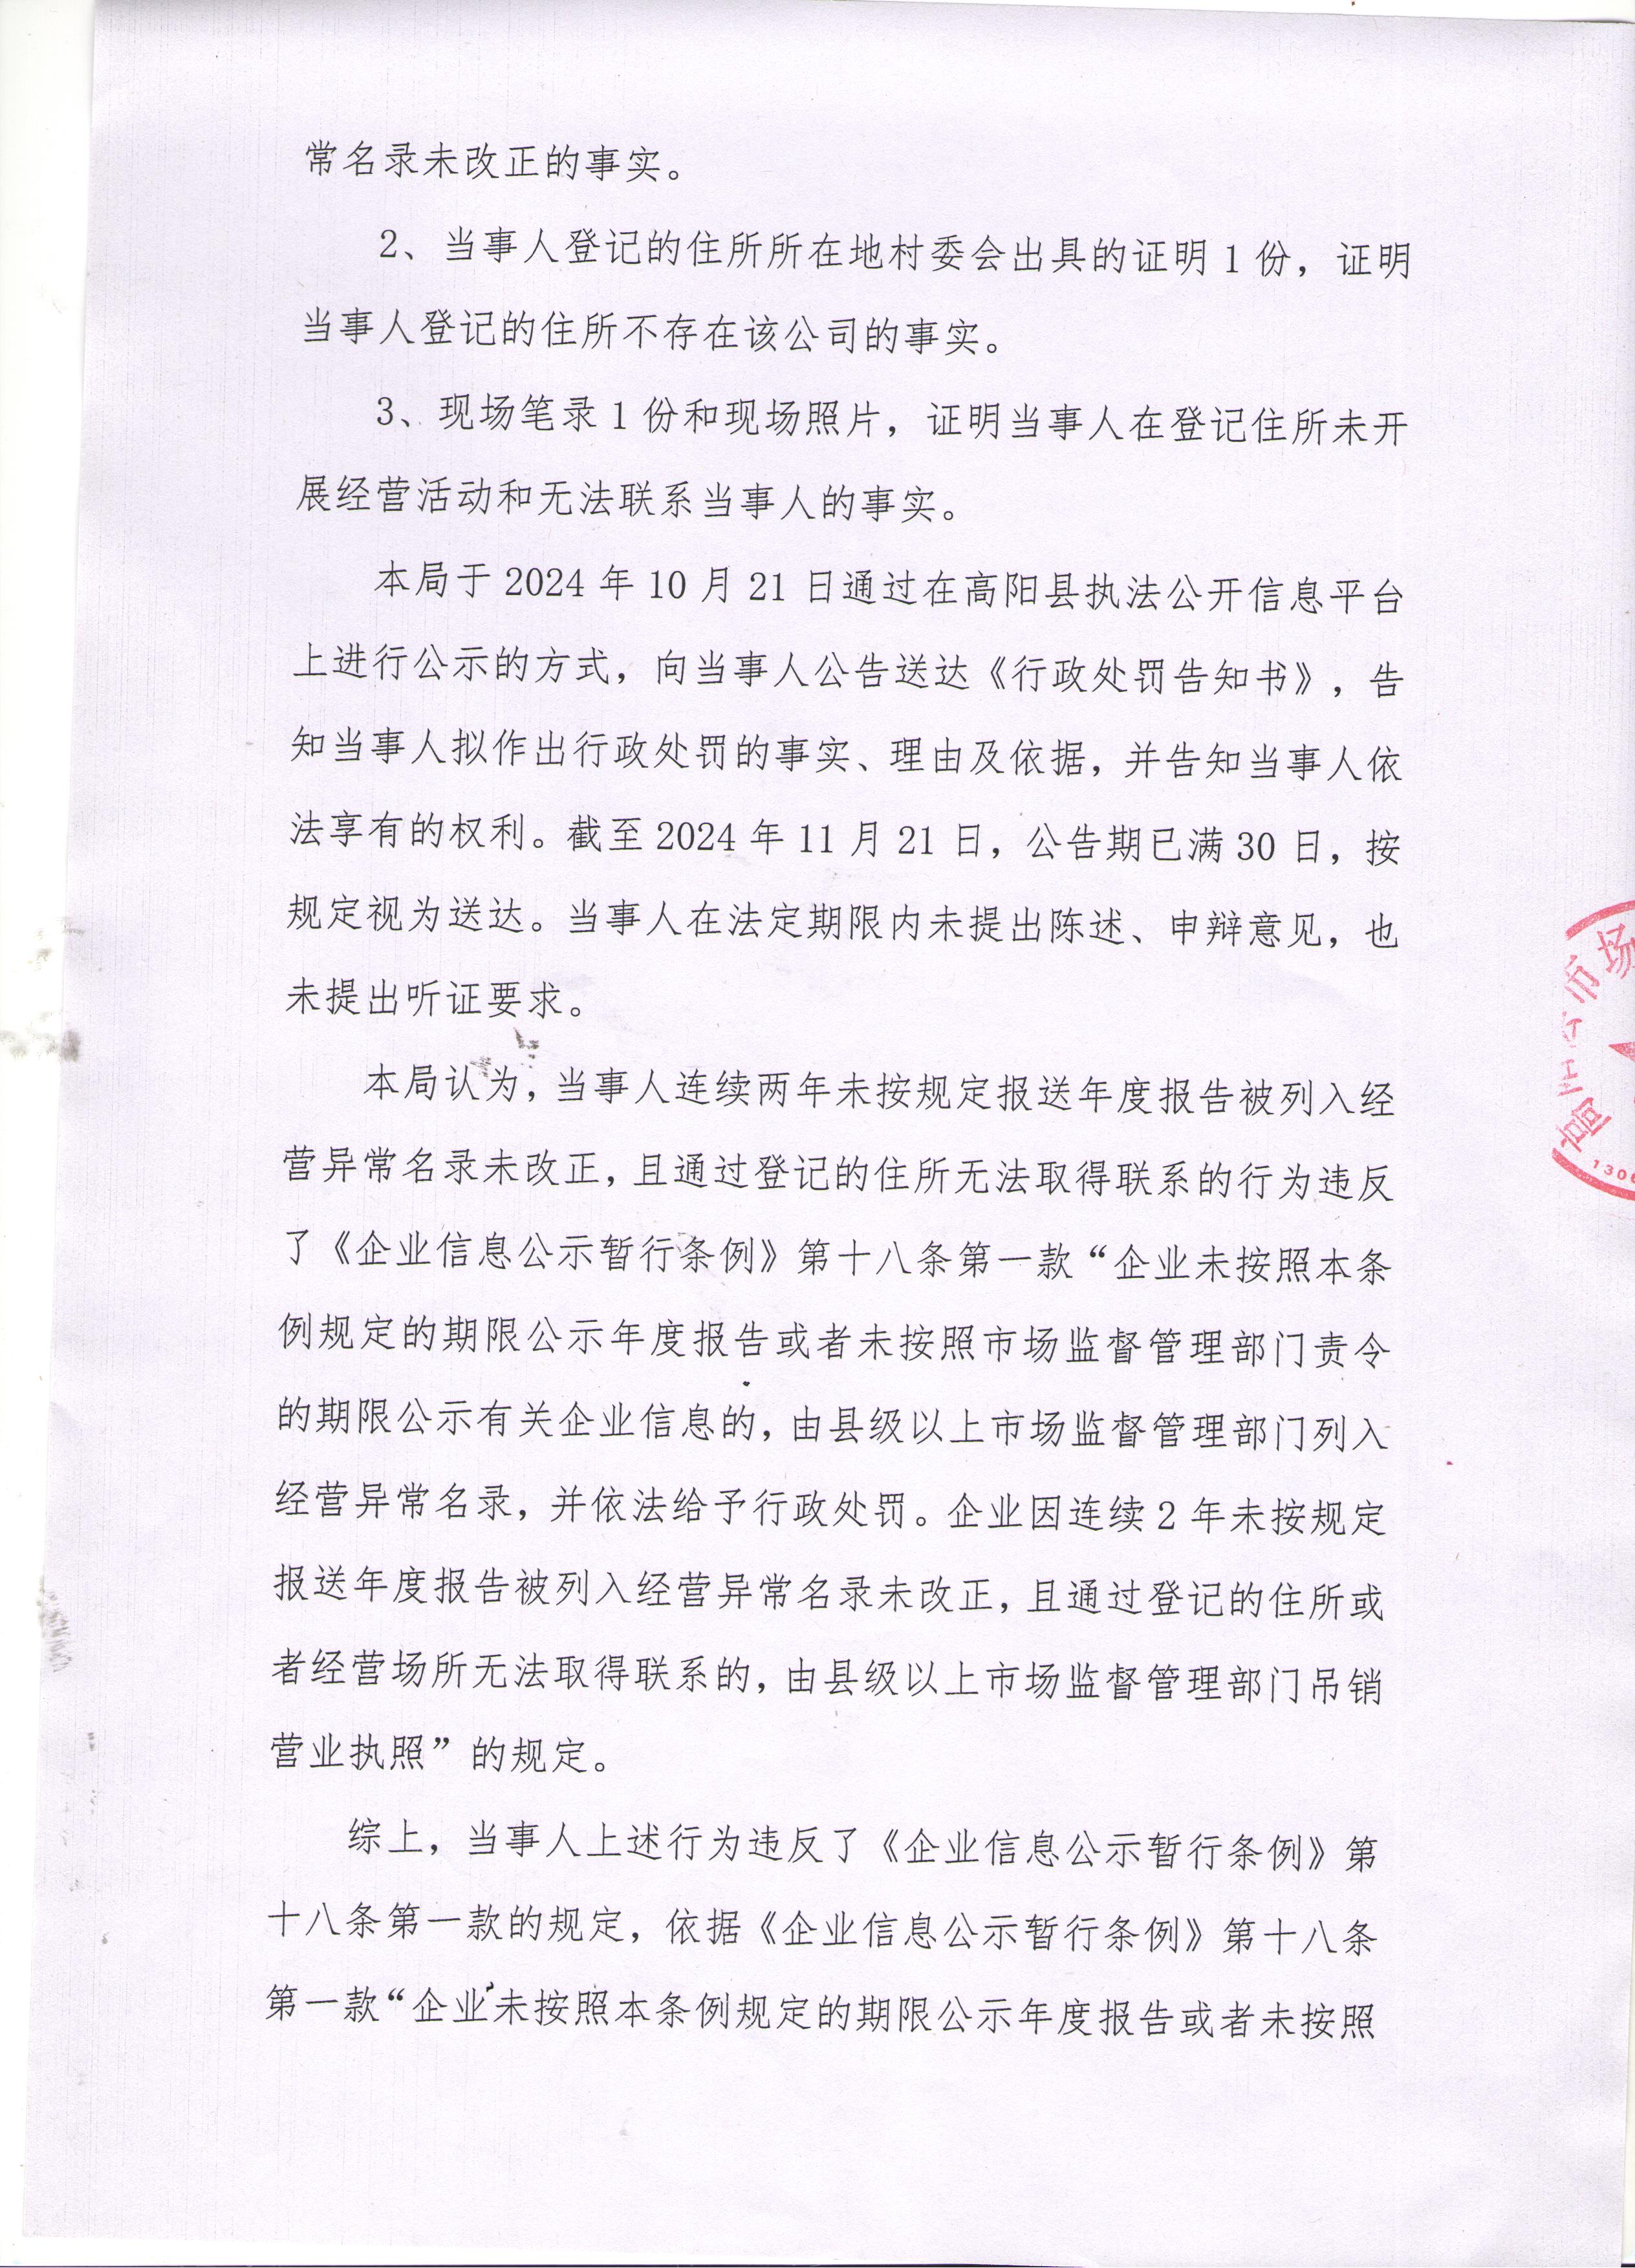 常名录未改正的事实。
2、当事人登记的住所所在地村委会出具的证明1份，证明
当事人登记的住所不存在该公司的事实。
3、现场笔录1份和现场照片，证明当事人在登记住所未开
展经营活动和无法联系当事人的事实。
本局于2024年10月21日通过在高阳县执法公开信息平台
上进行公示的方式，向当事人公告送达《行政处罚告知书》，告
知当事人拟作出行政处罚的事实、理由及依据，并告知当事人依
法享有的权利。截至2024年11月21日，公告期已满30日，按
规定视为送达。当事人在法定期限内未提出陈述、申辩意见，也
未提出听证要求。
本局认为，当事人连续两年未按规定报送年度报告被列入经
营异常名录未改正，且通过登记的住所无法取得联系的行为违反
了《企业信息公示暂行条例》第十八条第一款“企业未按照本条
例规定的期限公示年度报告或者未按照市场监督管理部门责令
的期限公示有关企业信息的，由县级以上市场监督管理部门列入
经营异常名录，并依法给予行政处罚。企业因连续2年未按规定
报送年度报告被列入经营异常名录未改正，且通过登记的住所或
者经营场所无法取得联系的，由县级以上市场监督管理部门吊销
营业执照”的规定。
综上，当事人上述行为违反了《企业信息公示暂行条例》第
十八条第一款的规定，依据《企业信息公示暂行条例》第十八条
第一款“企业未按照本条例规定的期限公示年度报告或者未按照
市场
1306